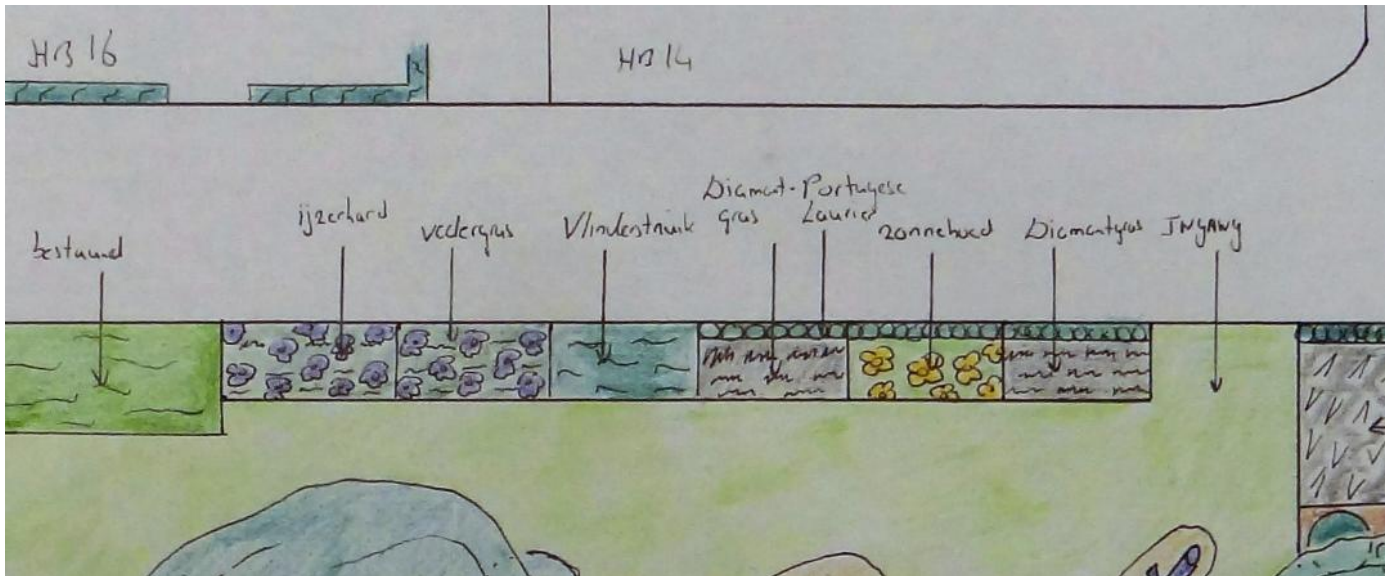 HB 16
HB 14
bestaand
ijzerhard
vedergras
Vlinderstruik
Diamant-
gras
Portugese
Laurier
zonnehoed
Diamantgras
INgANg